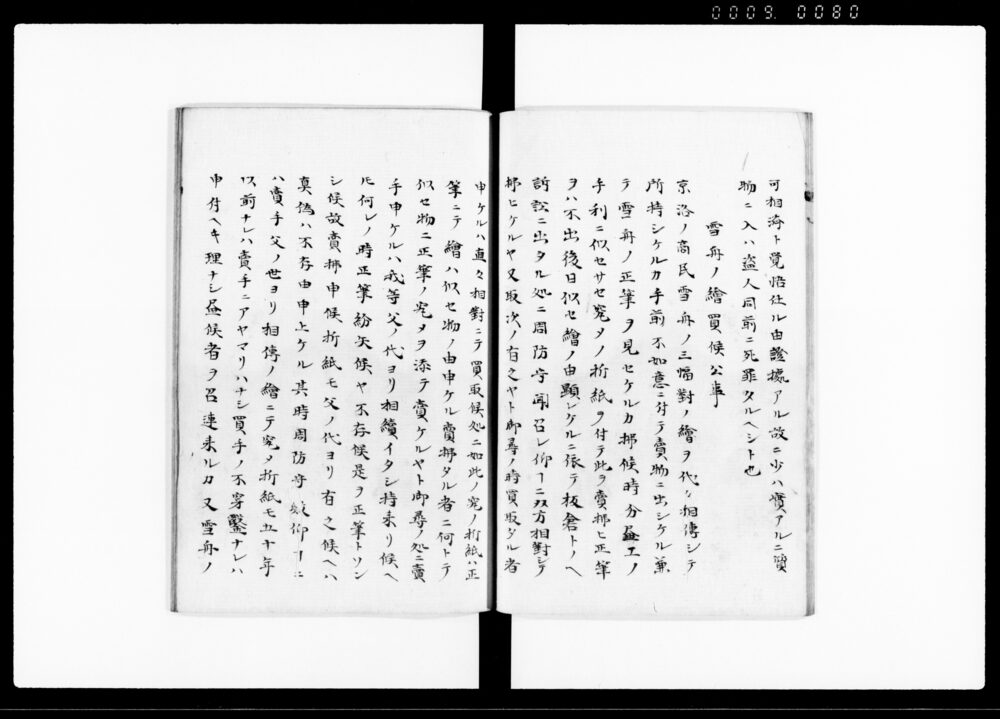 0009. 0080
可相濟ト覺悟仕ル由證據アル故ニ少ハ實アルニ質
物ニ入ハ盗人同前ニ死罪タルヘシト也
雪舟ノ繪買候公事
京洛ノ商民雪舟ノ三幅對ノ繪ヲ代々相傳シテ
所持シケルカ手前不如意ニ付テ賣物ニ出シケル兼
テ雪舟ノ正筆ヲ見セケルカ拂候時分畫工ノ
手利ニ似セサセ究メノ折紙ヲ付テ此ヲ賣拂ヒ正筆
ヲハ不出後日似セ繪ノ由顕シケルニ依テ板倉トノヘ
訴訟ニ出タル処ニ周防守聞召レ仰ーニ双方相對シテ
拂ヒケルヤ又取次ノ有之ヤト御尋ノ時買取タル者
申ケルハ直々相對ニテ買取候処ニ如此ノ究ノ折紙ハ正
筆ニテ繪ハ似セ物ノ由申ケル賣拂タル者ニ何トテ
似セ物ニ正筆ノ究メヲ添テ賣ケルヤト御尋ノ処ニ賣
手申ケルハ我等父ノ代ヨリ相續イタシ持来リ候ヘ
𪜈何レノ時正筆紛失候ヤ不存候是ヲ正筆トソン
シ候故賣拂申候折紙モ父ノ代ヨリ有之候ヘハ
真偽ハ不存由申上ケル其時周防守殿仰ーニ
ハ賣手父ノ世ヨリ相傳ノ繪ニテ究メ折紙モ五十年
以前ナレハ賣手ニアヤマリハナシ買手ノ不穿鑿ナレハ
申付ヘキ理ナシ畫候者ヲ召連来ルカ又雪舟ノ